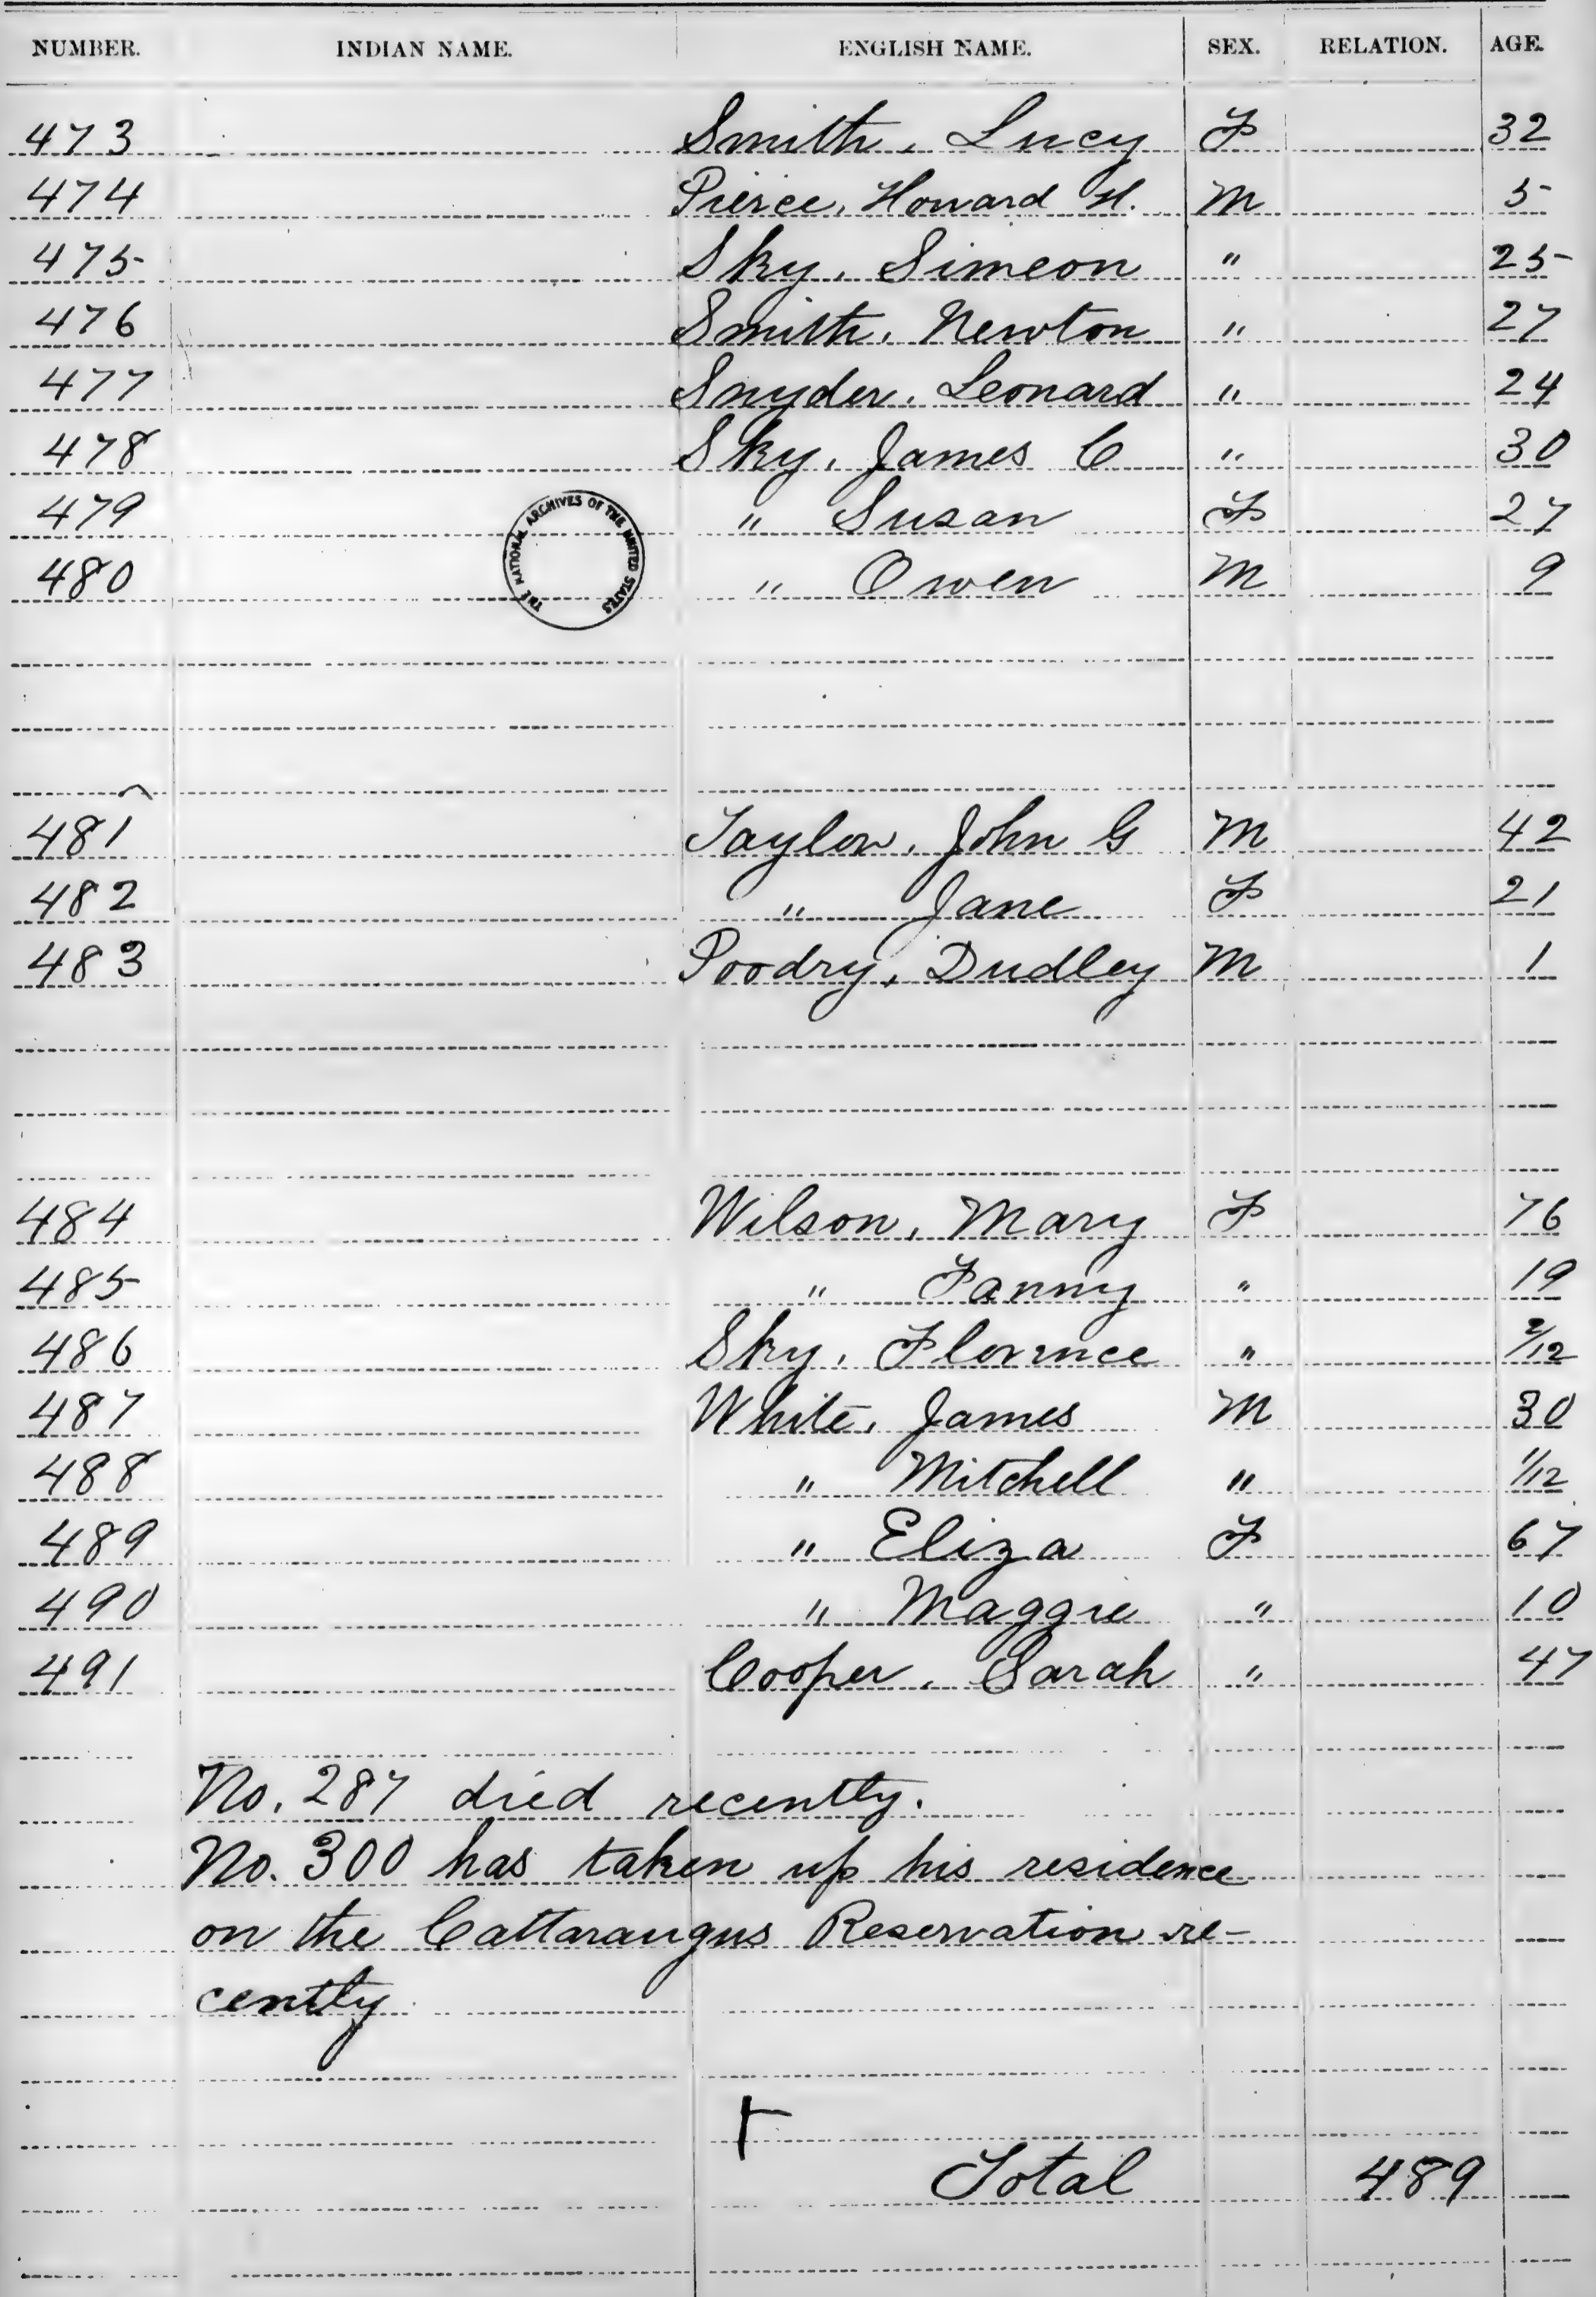 NUMBER. INDIAN NAME. ENGLISH NAME. SEX. RELATION. AGE.
473 Smith, Lucy F 32
474 Pierce, Howard H. M 5
475 Sky, Simeon " 25
476 Smith, Newton " 27
477 Snyder, Leonard " 24
478 Sky, James C " 30
479 " Susan F 27
THE NATIONAL ARCHIVES OF THE UNITED STATES
480 " Owen M 9
481 Taylor, John G M 42
482 " Jane F 21
483 Poodry, Dudley M 1
484 Wilson, Mary F 76
485 " Fanny " 19
486 Sky, Florence " 2/12
487 White, James M 30
488 " Mitchell " 1/12
489 " Eliza F 67
490 " Maggie " 10
491 Cooper, Sarah " 47
No. 287 died recently.
No. 300 has taken up his residence
on the Cattaraugus Reservation re-
cently
Total 489